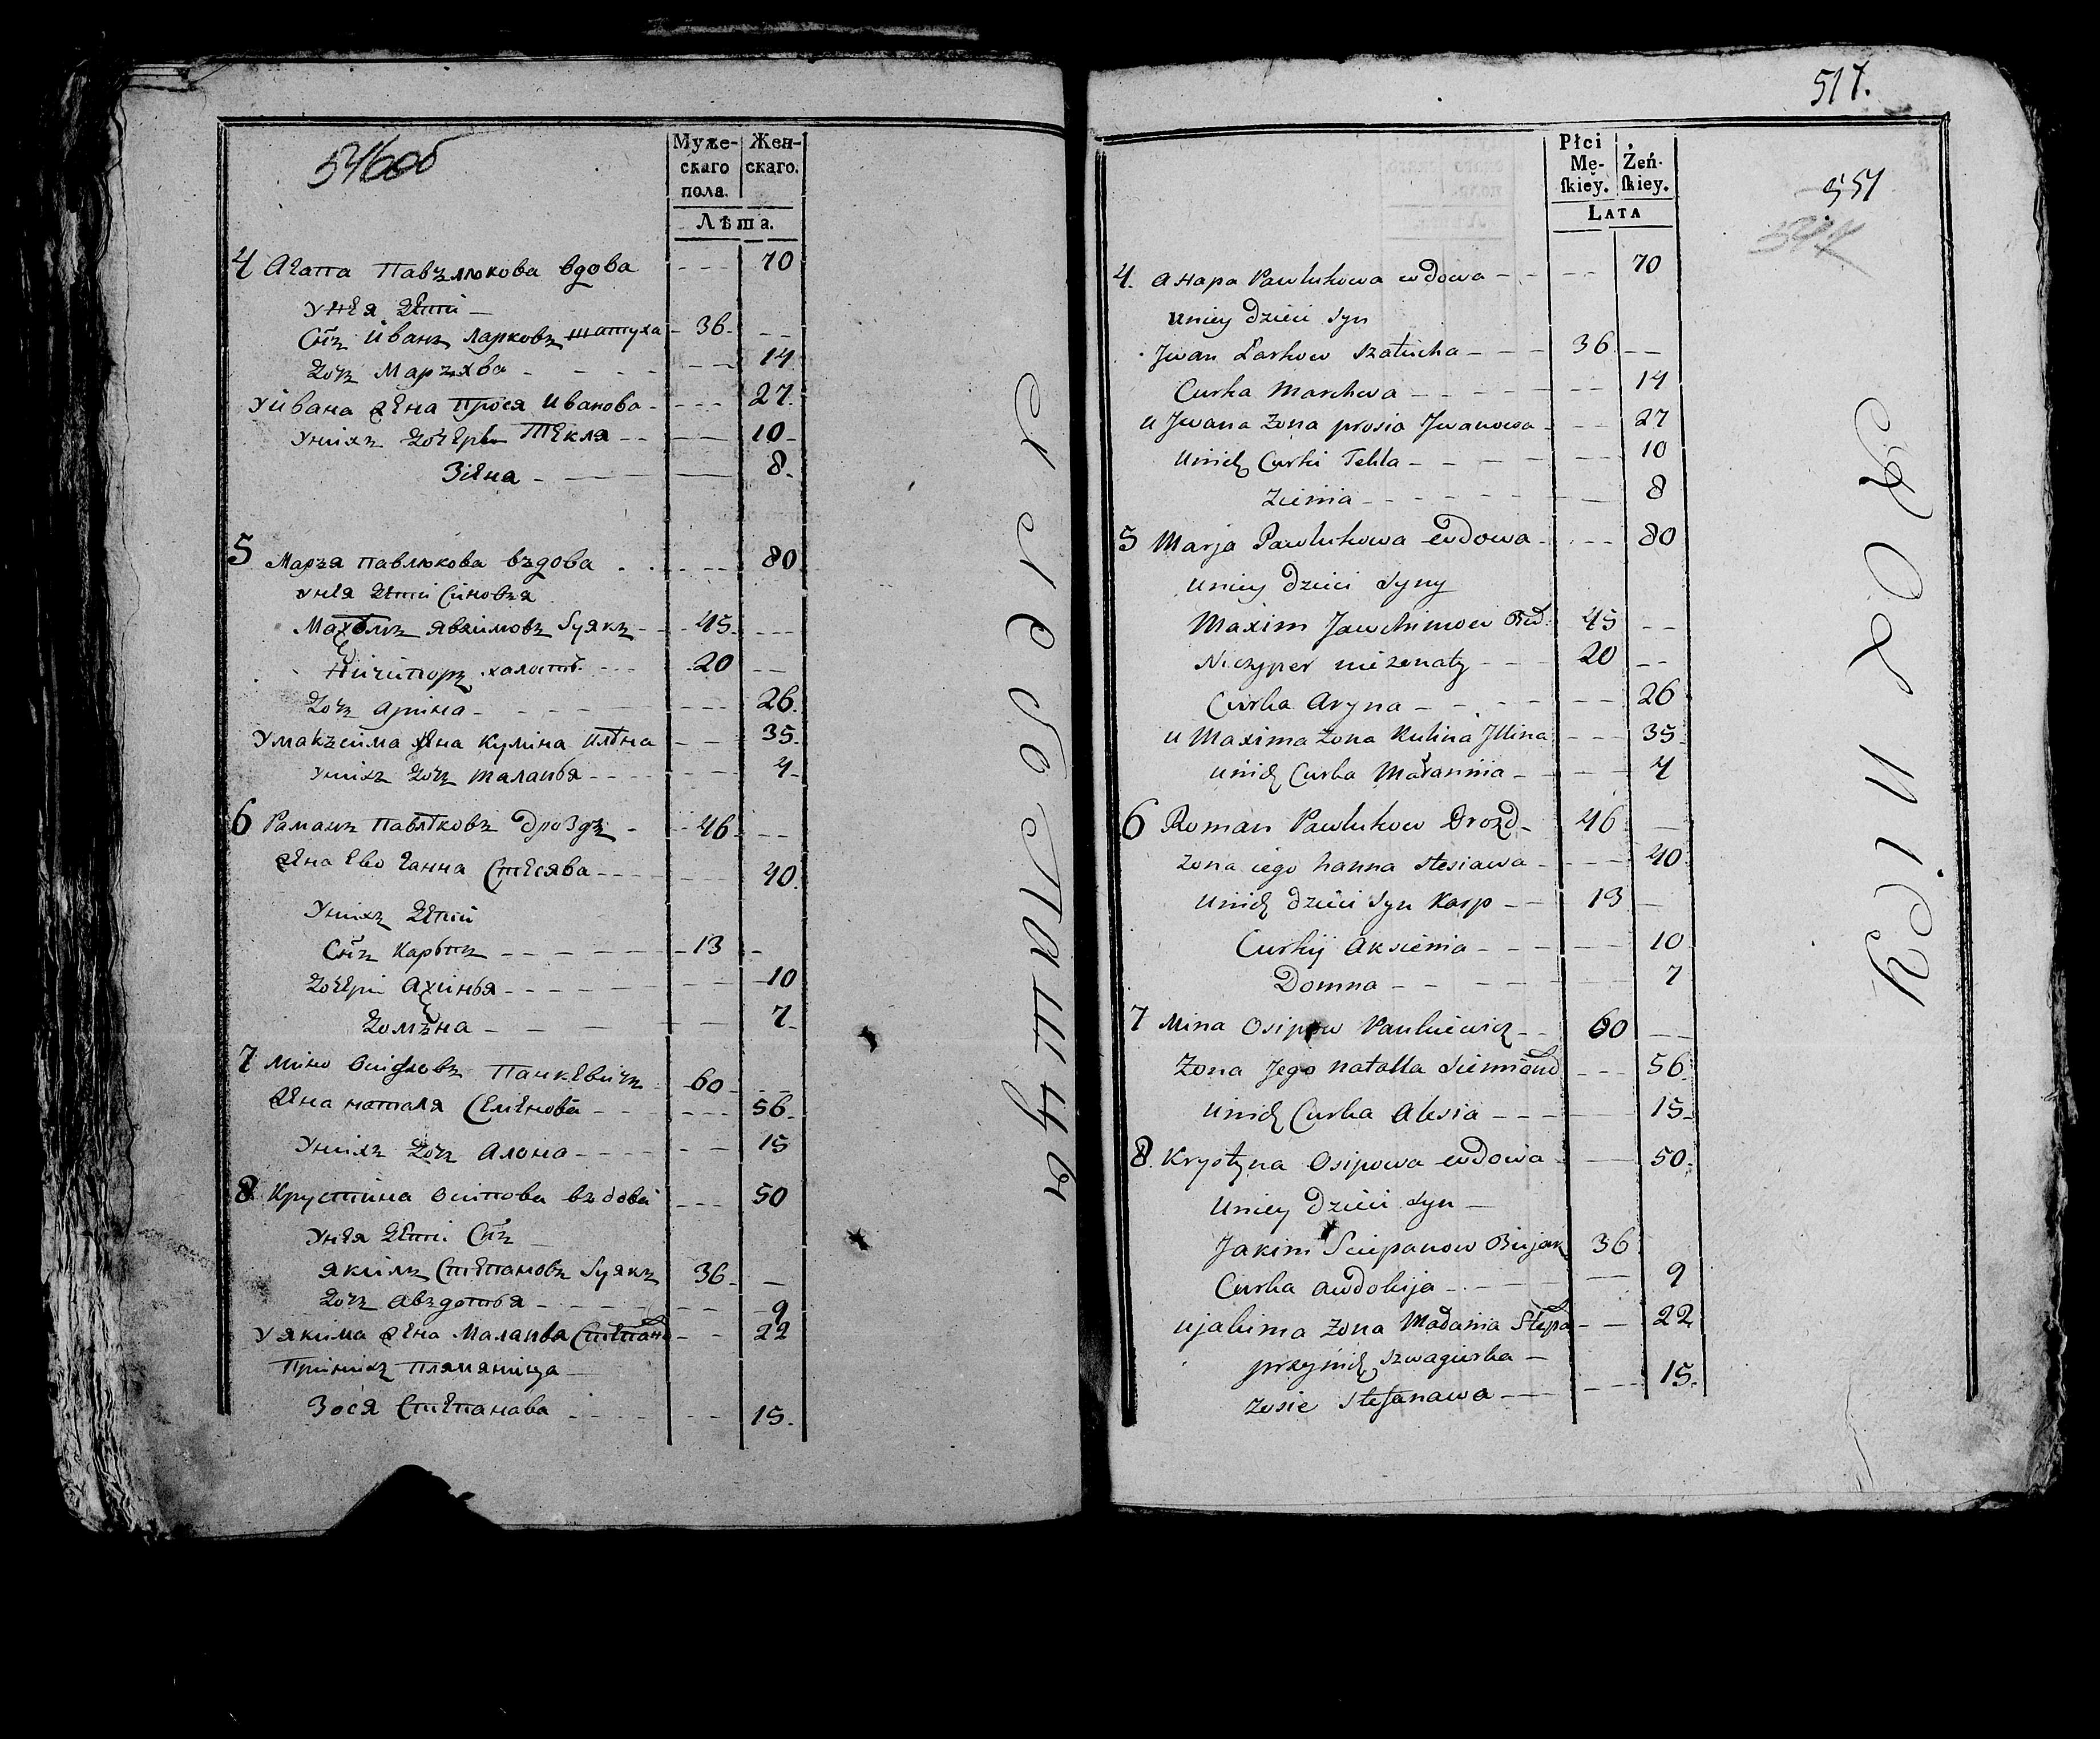 546об
Муже-
скаго
пола.
Жен-
скаго.
Лѣта.
4 Агапа Павзлюкова вдова - - - 70
Унея дети —
Снъ Иванъ Ларковъ шатуха - 36 - - -
Дочъ Маръхва - - - - 14
У Ивана жена Прося Иванова - - - 27.
Унихъ дочери Текля - - - 10
Зіена - — — 8.
5 Маръя Павлюкова въдова - - - 80
унея дети Синовъя
явхимовъ Буякъ - 45 - - -
Ничипоръ халостъ - - - 20 - -
Дочъ Арина - - - - - 26.
Умакъсима жена Кулина - - 35.
Унихъ дочъ Маланья - - - 4
6 Раманъ Дроздъ - 46 - -
жена ево Ганна Стесява - - - 40.
Унихъ дети
Снъ Карпъ - - - 13 -
Дочери Ахінья - - - 10
Домъна - - — 7.
7 Мино Осиповъ Панкевичъ 60 - -
жена наталя Семенова - - - 56
Унихъ дочъ Алона - - - 15
8 Крустина Осипова въдова - - - 50
Унея дети Снъ —
якимъ Степановъ Буякъ 36 - —
Дочъ Авъдотья - - - 9
Уякима жена Маланья - - 22
Принихъ Племяница —
Зося Степанава - - - 15.
517.
Płci
Mę-
ſkiey.
Żeń-
ſkiey.
LATA
551
4. Pawlukowa wdowa - - - 70
Uniey dzieci Syn
Jwan Larkow Szatucha - - - 36 - -
Curka Marchwa - - - 14
u Jwana Zona prosia Jwanowa - - - 27
Unich Curki Tekla - - - 10
Zienia - - - 8
5 Marja Pawlukowa wdowa - - - 80
Uniey dzieci Syny
Maxim Jawchimow 45 - -
Niczyper niezonaty - - 20 - -
Curka Aryna - - - 26
u Maxima Zona Kulina Jllina - - - 35
Unich Curka Małannia - - - 4
6 Roman Pawlukow Drozd - 46 —
Zona iego hanna Stesiawa - - - 40
Unich dzieci Syn Karp - - 13 —
Curkij Aksienia - - - 10
Domna - - - 7
7 Mina Osipow Pankiewicz - - 60 —
Zona Jego natalla - - - 56
Unich Curka Alesia - - - 15
8. Krystyna Osipowa wdowa - — 50
Uniey dzieci Syn —
Jakim Sciepanow Bujak 36
Curka Awdokija - - - 9
ujakima Zona - - 22
przynich Szwagierka —
Zosie Stefanawa - - - 15.